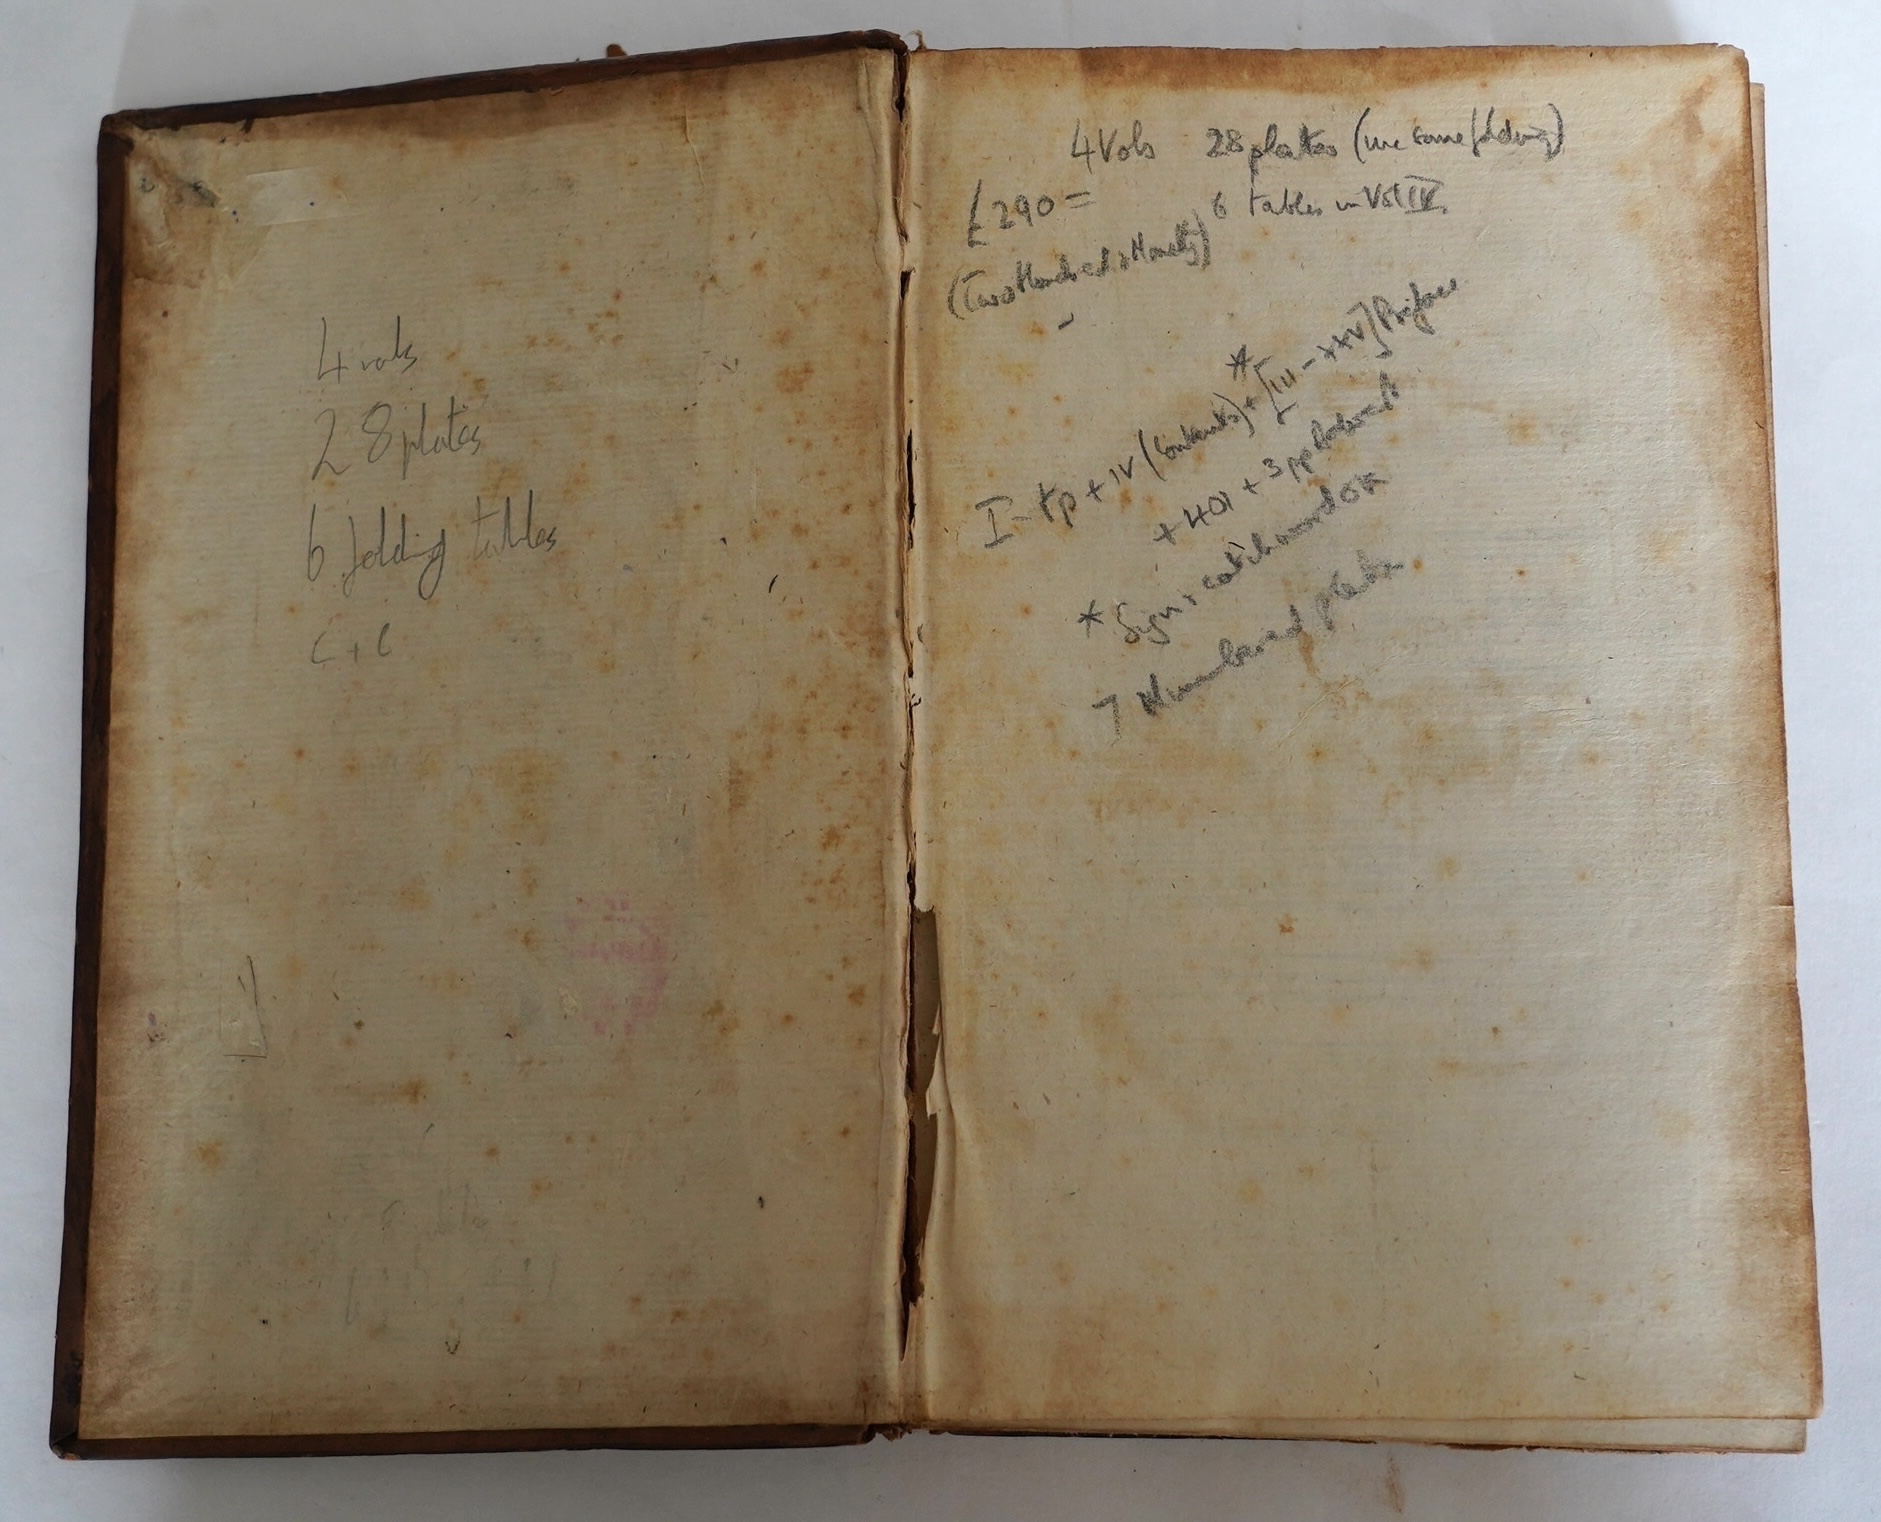 4 vols
28 plates
6 folding tables
C + C
4 Vols 28 plates (inc some folding)
£290 = 6 tables in Vol IV
(Two Hundred & Ninety)
I - tp + IV (Contents)* + [III - XXV] Preface
+ 401 + 3 pp
* Sign & catchword OK
7 Numbered plates